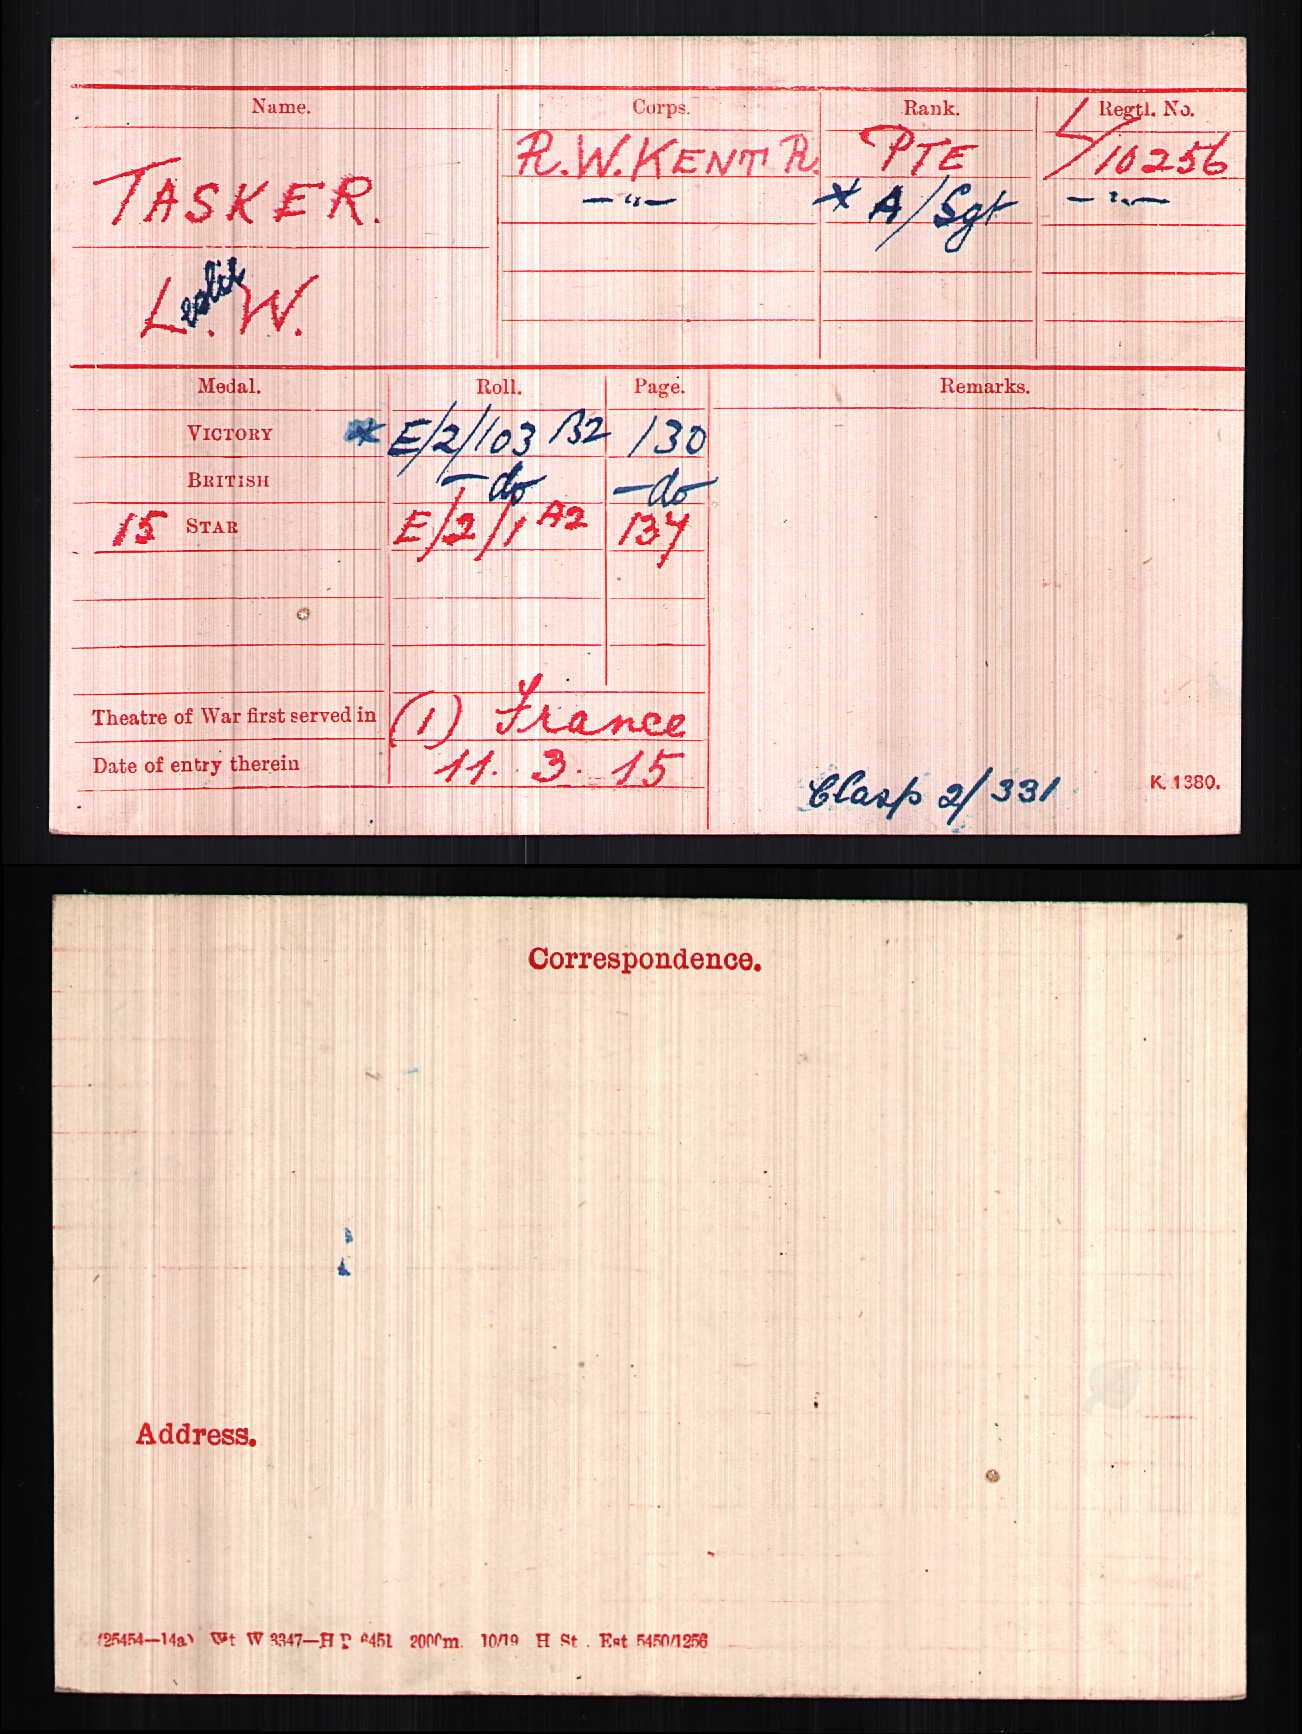 Name. Corps. Rank. Regtl. No.
TASKER. R.W.KENT R. PTE L/10256
—"— * A/Sgt —"—
Leslie W.
Medal. Roll. Page. Remarks.
VICTORY * E/2/103 B2 130
BRITISH —do —do—
15 STAR E/2/1 A2 134
Theatre of War first served in (1) France
Date of entry therein 11. 3. 15
Clasp 2/331 K. 1380.
Correspondence.
Address.
(25454—14a) Wt W 3347—H P 6451 2000m. 10/19 H St. Est 5450/1256